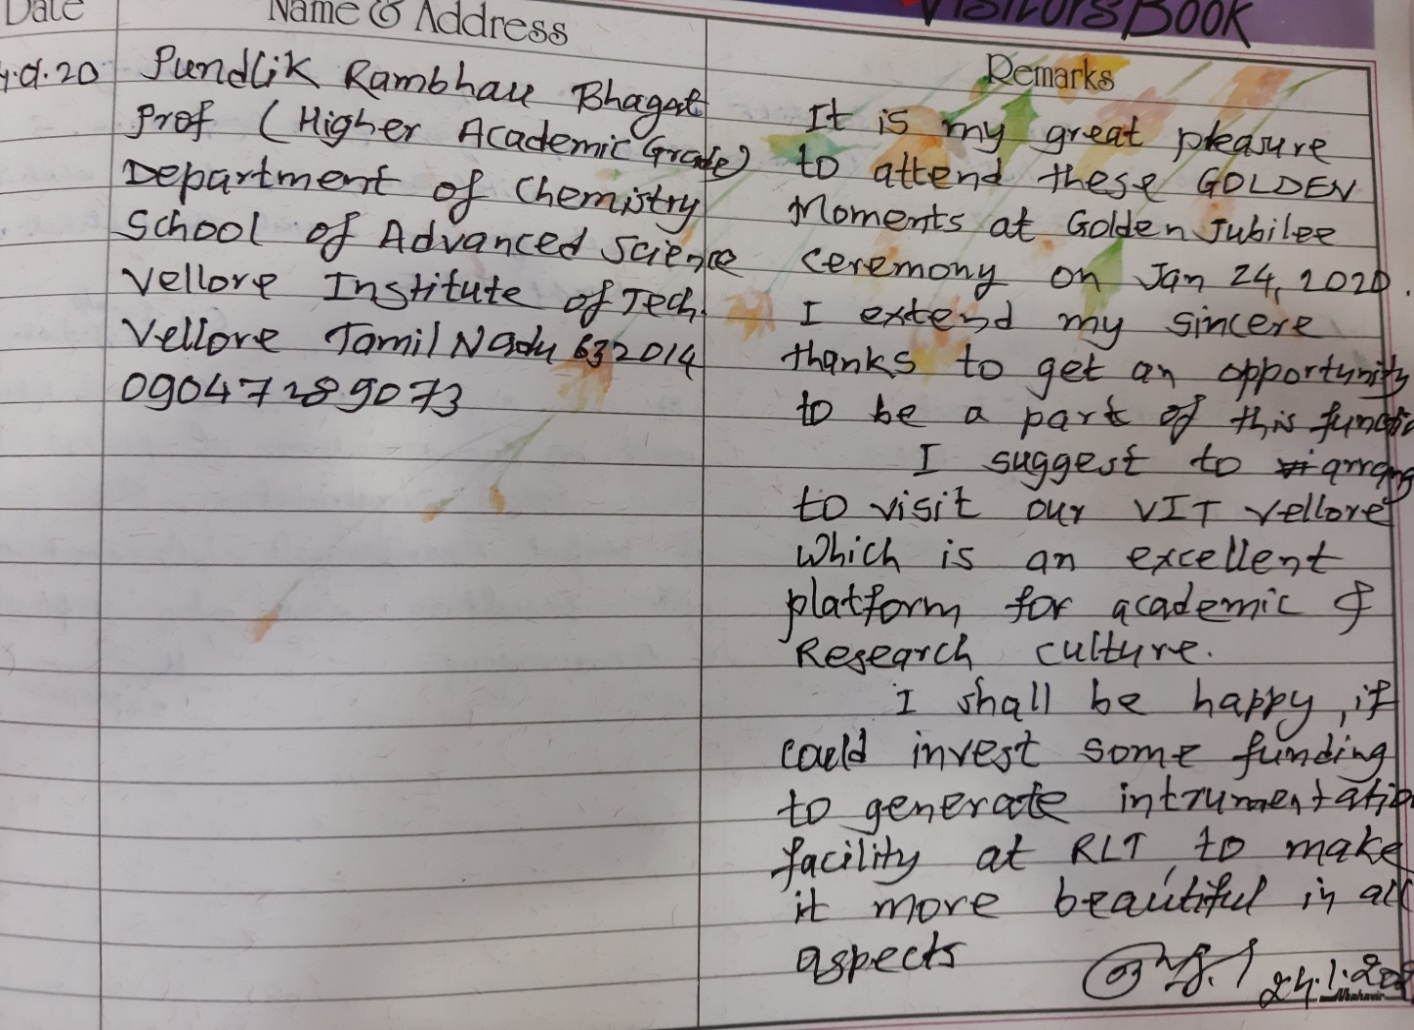 Visitors Book
Date
Name & Address
Remarks
4.01.20
Pundlik Rambhau Bhagat
Prof (Higher Academic Grade)
Department of Chemistry
School of Advanced Science
Vellore Institute of Tech.
Vellore Tamil Nadu 632014
09047289073
It is my great pleasure
to attend these GOLDEN
Moments at Golden Jubilee
ceremony on Jan 24, 2020.
I extend my sincere
thanks to get an opportunity
to be a part of this functio
I suggest to arrang
to visit our VIT Vellore
which is an excellent
platform for academic &
Research culture.
I shall be happy, if
could invest some funding
to generate intrumentatio
facility at RLT, to make
it more beautiful in all
aspects
24.1.202